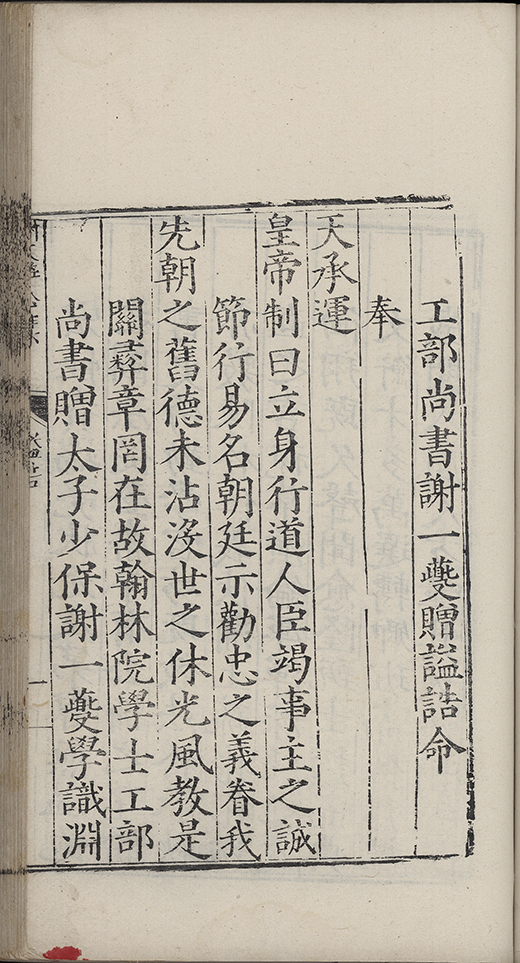 工部尚書謝一夔贈謚誥命
奉
天承運
皇帝制曰立身行道人臣竭事主之誠
節行易名朝廷示勸忠之義眷我
先朝之舊德未沾沒世之休光風教是
關彞章罔在故翰林院學士工部
尚書贈太子少保謝一夔學識淵